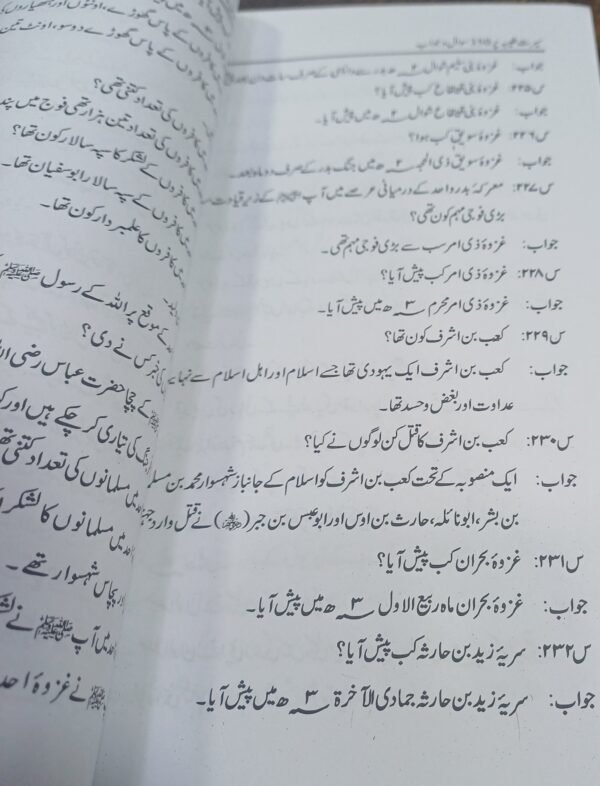 سیرت طیبہ پر سوال، جواب
جواب: غزوۂ بنی سلیم شوال ۲ ھ بدر سے واپسی کے صرف سات دن بعد
س۲۲۵: غزوۂ بنی قینقاع کب پیش آیا؟
جواب: غزوۂ بنی قینقاع شوال ۲ ھ میں پیش آیا۔
س۲۲۶: غزوۂ سویق کب ہوا؟
جواب: غزوۂ سویق ذی الحجہ ۲ ھ میں جنگ بدر کے صرف دو ماہ بعد۔
س۲۲۷: معرکۂ بدر و احد کے درمیانی عرصے میں آپ ﷺ کے زیر قیادت
بڑی فوجی مہم کون تھی؟
جواب: غزوۂ ذی امر سب سے بڑی فوجی مہم تھی۔
س۲۲۸: غزوۂ ذی امر کب پیش آیا؟
جواب: غزوۂ ذی امر محرم ۳ ھ میں پیش آیا۔
س۲۲۹: کعب بن اشرف کون تھا؟
جواب: کعب بن اشرف ایک یہودی تھا جسے اسلام اور اہل اسلام سے نہا
عداوت اور بغض و حسد تھا۔
س۲۳۰: کعب بن اشرف کا قتل کن لوگوں نے کیا؟
جواب: ایک منصوبہ کے تحت کعب بن اشرف کو اسلام کے جانباز شہسوار محمد بن مسلم
بن بشر، ابو نائلہ، حارث بن اوس اور ابو عبس بن جبر (رضی اللہ عنہم) نے قتل
س۲۳۱: غزوۂ بحران کب پیش آیا؟
جواب: غزوۂ بحران ماہ ربیع الاول ۳ ھ میں پیش آیا۔
س۲۳۲: سریۂ زید بن حارثہ کب پیش آیا؟
جواب: سریۂ زید بن حارثہ جمادی الآخرۃ ۳ ھ میں پیش آیا۔
کافروں کے پاس گھوڑے دو سو، اونٹ تین
کافروں کی تعداد کتنی تھی؟
کافروں کی تعداد تین ہزار تھی فوج میں
کافروں کے لشکر کا سپہ سالار کون تھا؟
کافروں کے سپہ سالار ابو سفیان تھا۔
کافروں کا علمبردار کون تھا۔
کے موقع پر اللہ کے رسول ﷺ
کس نے دی؟
کے چچا حضرت عباس رضی
کی تیاری کر چکے ہیں اور
میں مسلمانوں کی تعداد کتنی
میں مسلمانوں کا لشکر
پچاس شہسوار تھے۔
میں آپ ﷺ نے
نے غزوۂ احد